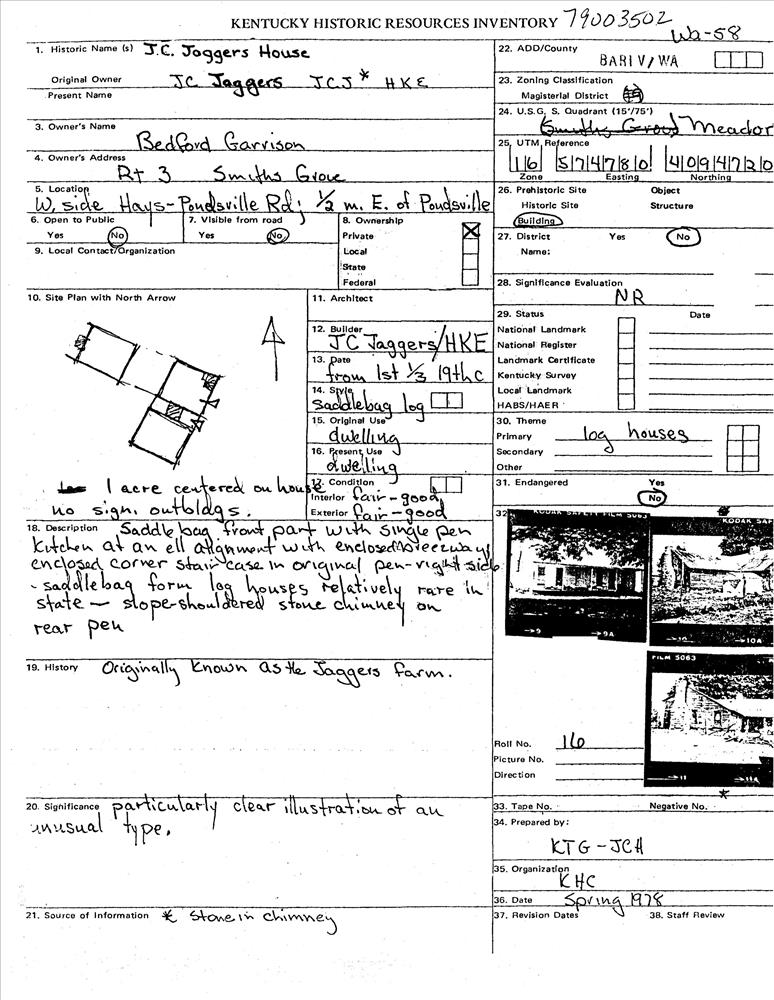 KENTUCKY HISTORIC RESOURCES INVENTORY 79003502
Wa-58
1. Historic Name (s) J.C. Jaggers House
Original Owner JC Jaggers JCJ* HKE
Present Name
3. Owner's Name
Bedford Garrison
4. Owner's Address
Rt 3 Smiths Grove
5. Location
W. side Hays-Pondsville Rd; 1/2 m. E. of Pondsville
6. Open to Public
Yes No
7. Visible from road
Yes No
8. Ownership
Private X
Local
State
Federal
9. Local Contact/Organization
10. Site Plan with North Arrow
1 acre centered on house
no sign. outbldgs.
11. Architect
12. Builder
JC Jaggers/HKE
13. Date
from 1st 1/3 19th c
14. Style
saddlebag log
15. Original Use
dwelling
16. Present Use
dwelling
17. Condition
Interior fair-good
Exterior fair-good
18. Description Saddlebag front part with single pen
kitchen at an ell alignment with enclosed breezway/
enclosed corner staircase in original pen-right side
- saddlebag form log houses relatively rare in
state — slope-shouldered stone chimney on
rear pen
19. History Originally known as the Jaggers farm.
20. Significance particularly clear illustration of an
unusual type.
21. Source of Information * Stone in chimney
22. ADD/County
BARIV/WA
23. Zoning Classification
Magisterial District
24. U.S.G. S. Quadrant (15'/75')
Smiths Grove Meador
25. UTM Reference
16 574780 4094720
Zone Easting Northing
26. Prehistoric Site Object
Historic Site Structure
Building
27. District Yes No
Name:
28. Significance Evaluation
NR
29. Status Date
National Landmark
National Register
Landmark Certificate
Kentucky Survey
Local Landmark
HABS/HAER
30. Theme
Primary log houses
Secondary
Other
31. Endangered Yes
No
32
KODAK SAFETY FILM 5063
KODAK SAF
→9 →9A
→10 →10A
FILM 5063
→11 →11A
Roll No. 16
Picture No.
Direction
*
33. Tape No. Negative No.
34. Prepared by:
KTG-JCH
35. Organization
KHC
36. Date Spring 1978
37. Revision Dates 38. Staff Review